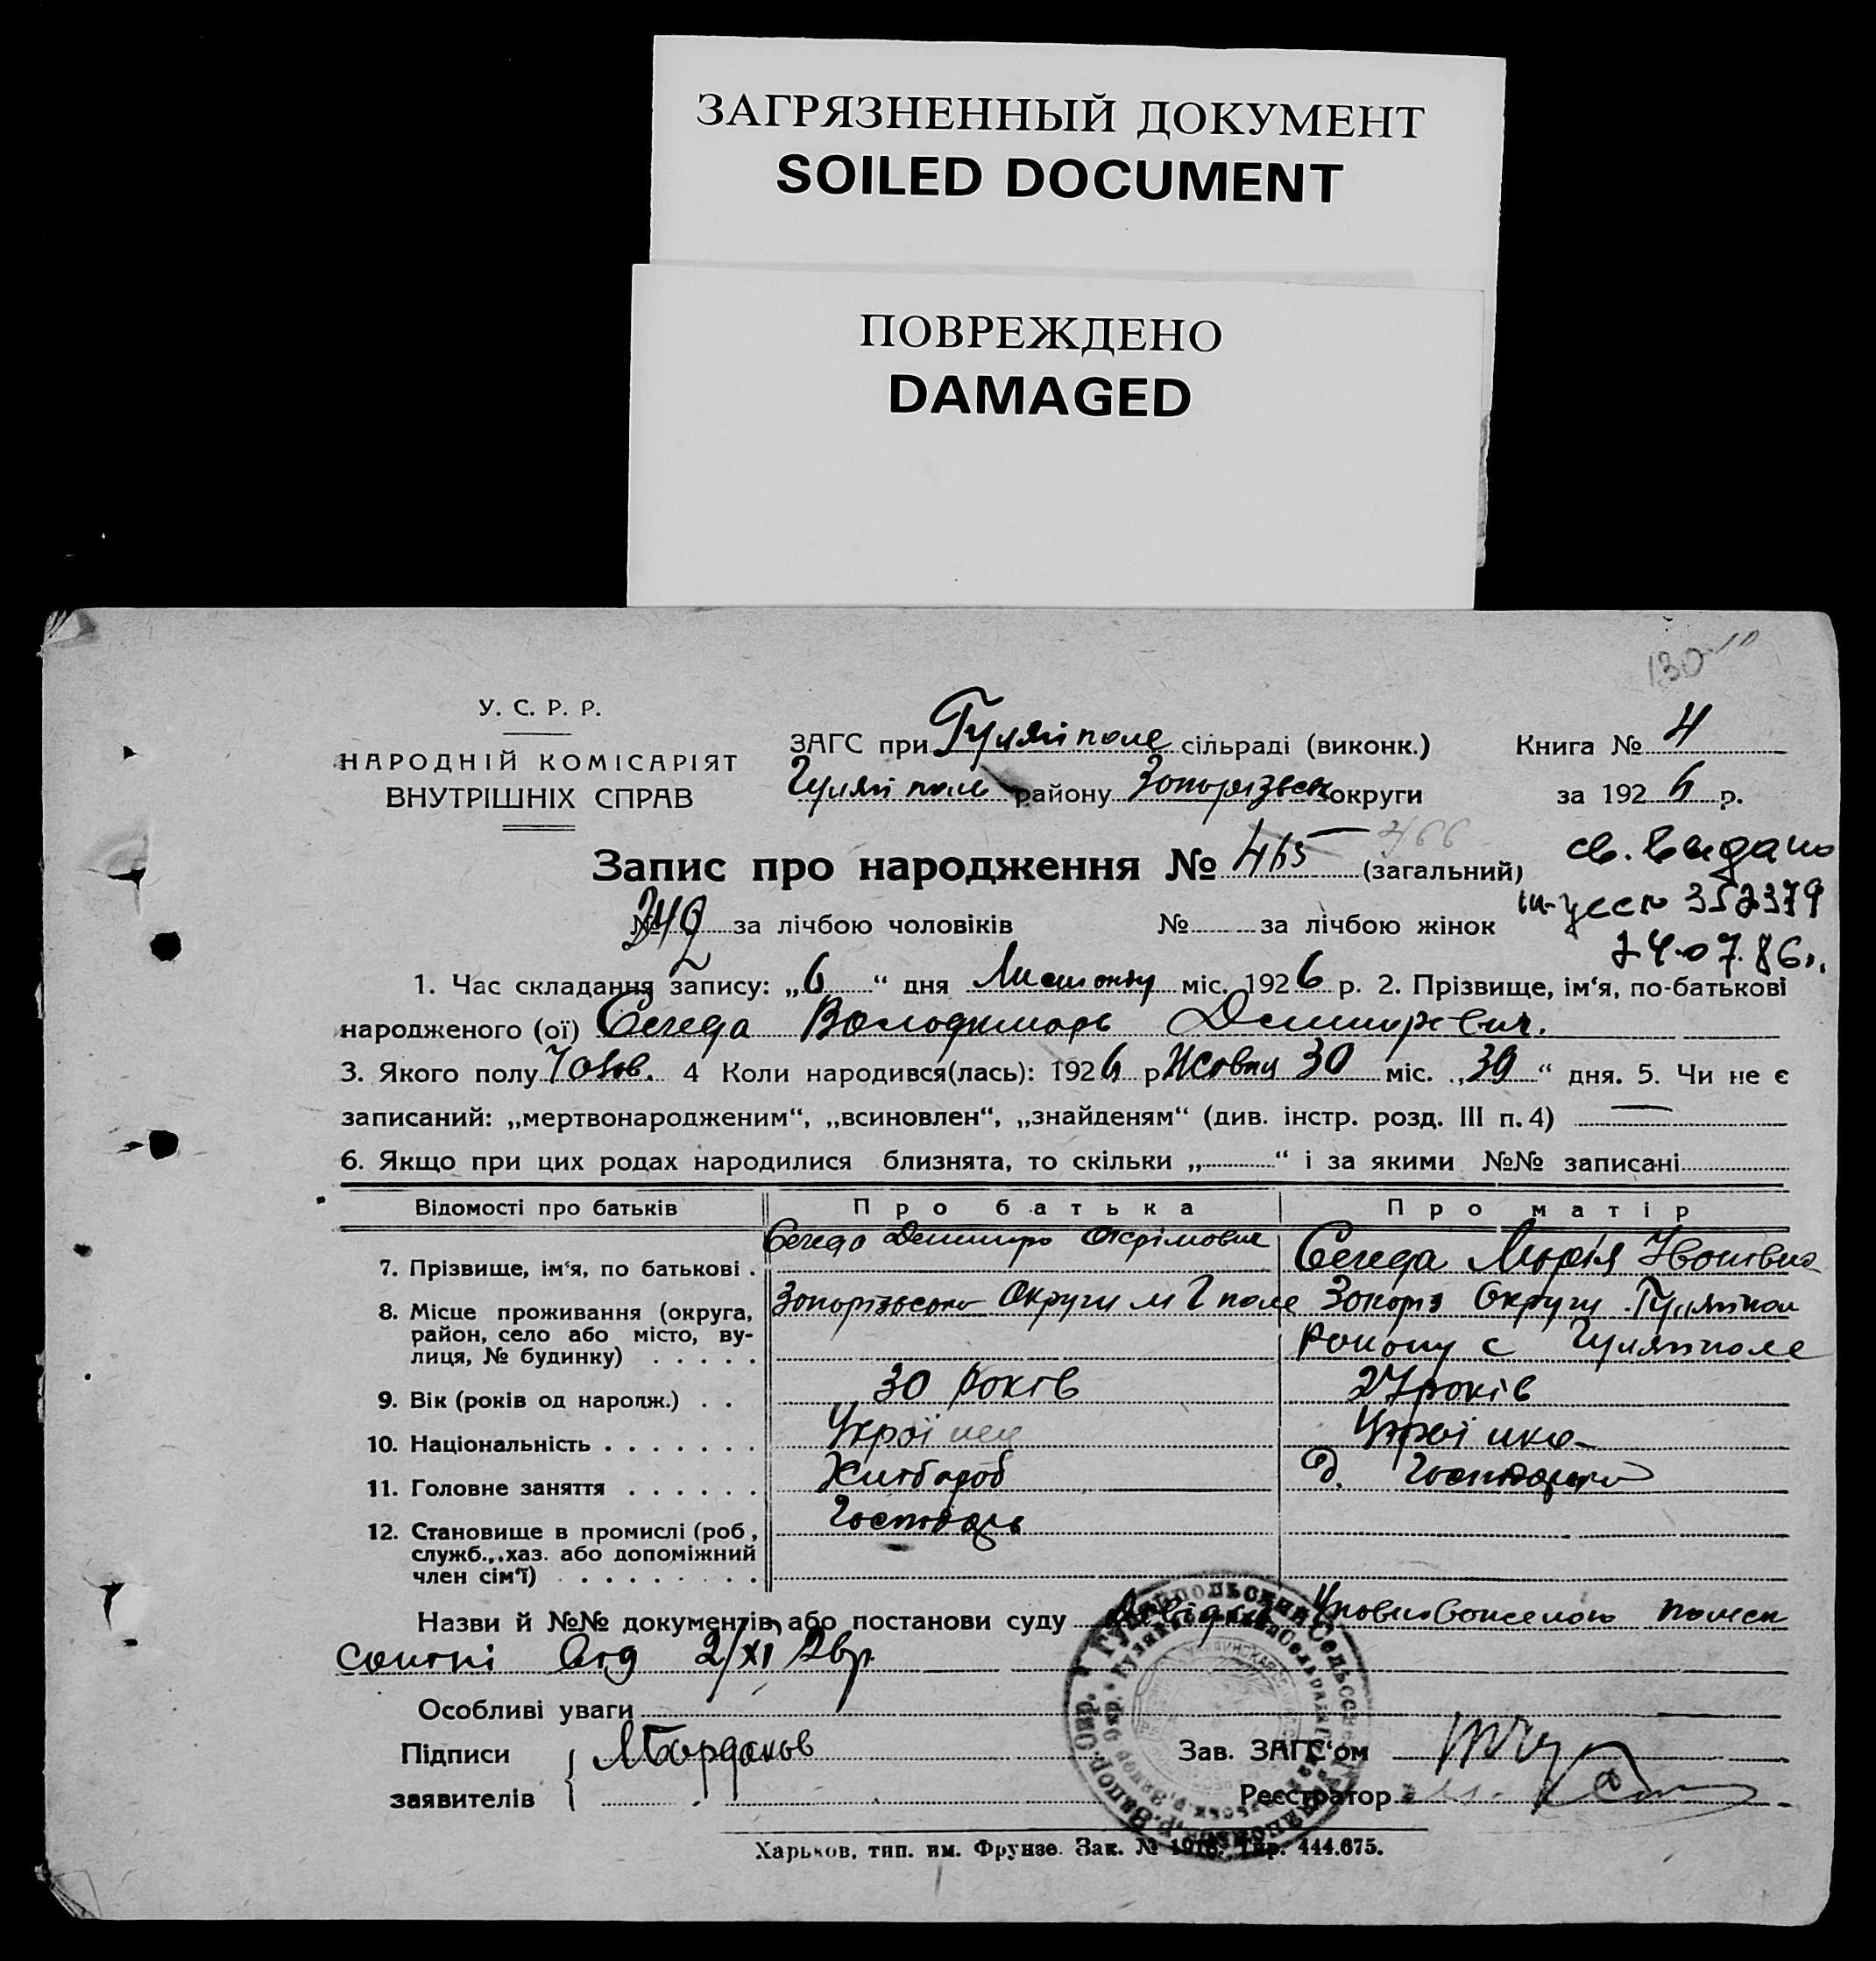 ЗАГРЯЗНЕННЫЙ ДОКУМЕНТ
SOILED DOCUMENT
ПОВРЕЖДЕНО
DAMAGED
130
У. С. Р. Р.
НАРОДНІЙ КОМІСАРІЯТ
ВНУТРІШНІХ СПРАВ
ЗАГС при Гуляйполе сільраді (виконк.)
Гуляй поле району Запорізьск округи
Книга № 4
за 1926 р.
Запис про народження № 465 466 (загальний)
№ 249 за лічбою чоловіків № за лічбою жінок
св. видано
352379
24.07.86г.
1. Час складання запису: „6“ дня Листопаду міс. 1926 р. 2. Прізвище, ім‘я, по-батькові
народженого (ої) Середа Володимирь Дмитревич.
3. Якого полу Чолов. 4 Коли народився(лась): 1926 р Жовтня 30 міс. „30“ дня. 5. Чи не є
записаний: „мертвонародженим“, „всиновлен“, „знайденям“ (див. інстр. розд. III п. 4) —
6. Якщо при цих родах народилися близнята, то скільки „ “ і за якими №№ записані
Відомості про батьків Про батька Про матір
7. Прізвище, ім‘я, по батькові . Середа Дмитро Охрімович Середа Марія Івонівна
8. Місце проживання (округа, район, село або місто, вулиця, № будинку) Запорізької Округи м Г поле Запоріз Округи Гуляйпол
району с Гуляйполе
9. Вік (років од народж.) . . 30 років 27 років
10. Національність . . . . . . . Українец Українка
11. Головне заняття . . . . . . Хлібороб д. Господарка
12. Становище в промислі (роб, служб., хаз. або допоміжний член сім‘ї) Господарь
Назви й №№ документів або постанови суду Довідка
сотні Від 2/XI 26р.
Особливі уваги
Підписи заявителів
Зав. ЗАГС‘ом
Реєстратор
Харьков, тип. им. Фрунзе. Зак. № 1916. Тир. 444.675.